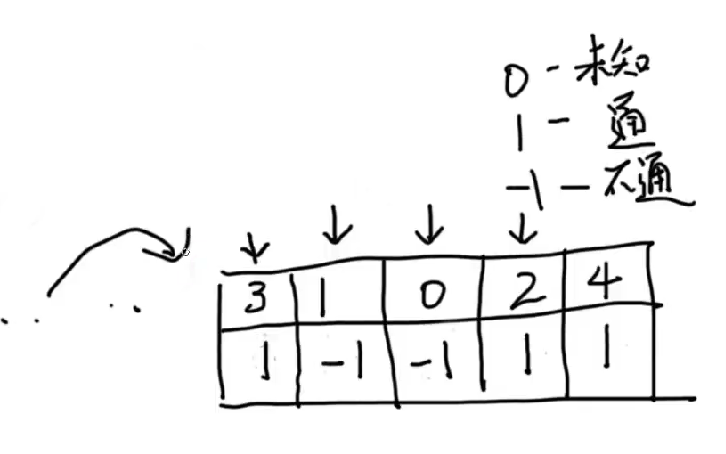 0 - 未知
1 - 通
-1 - 不通
3 1 0 2 4
1 -1 -1 1 1